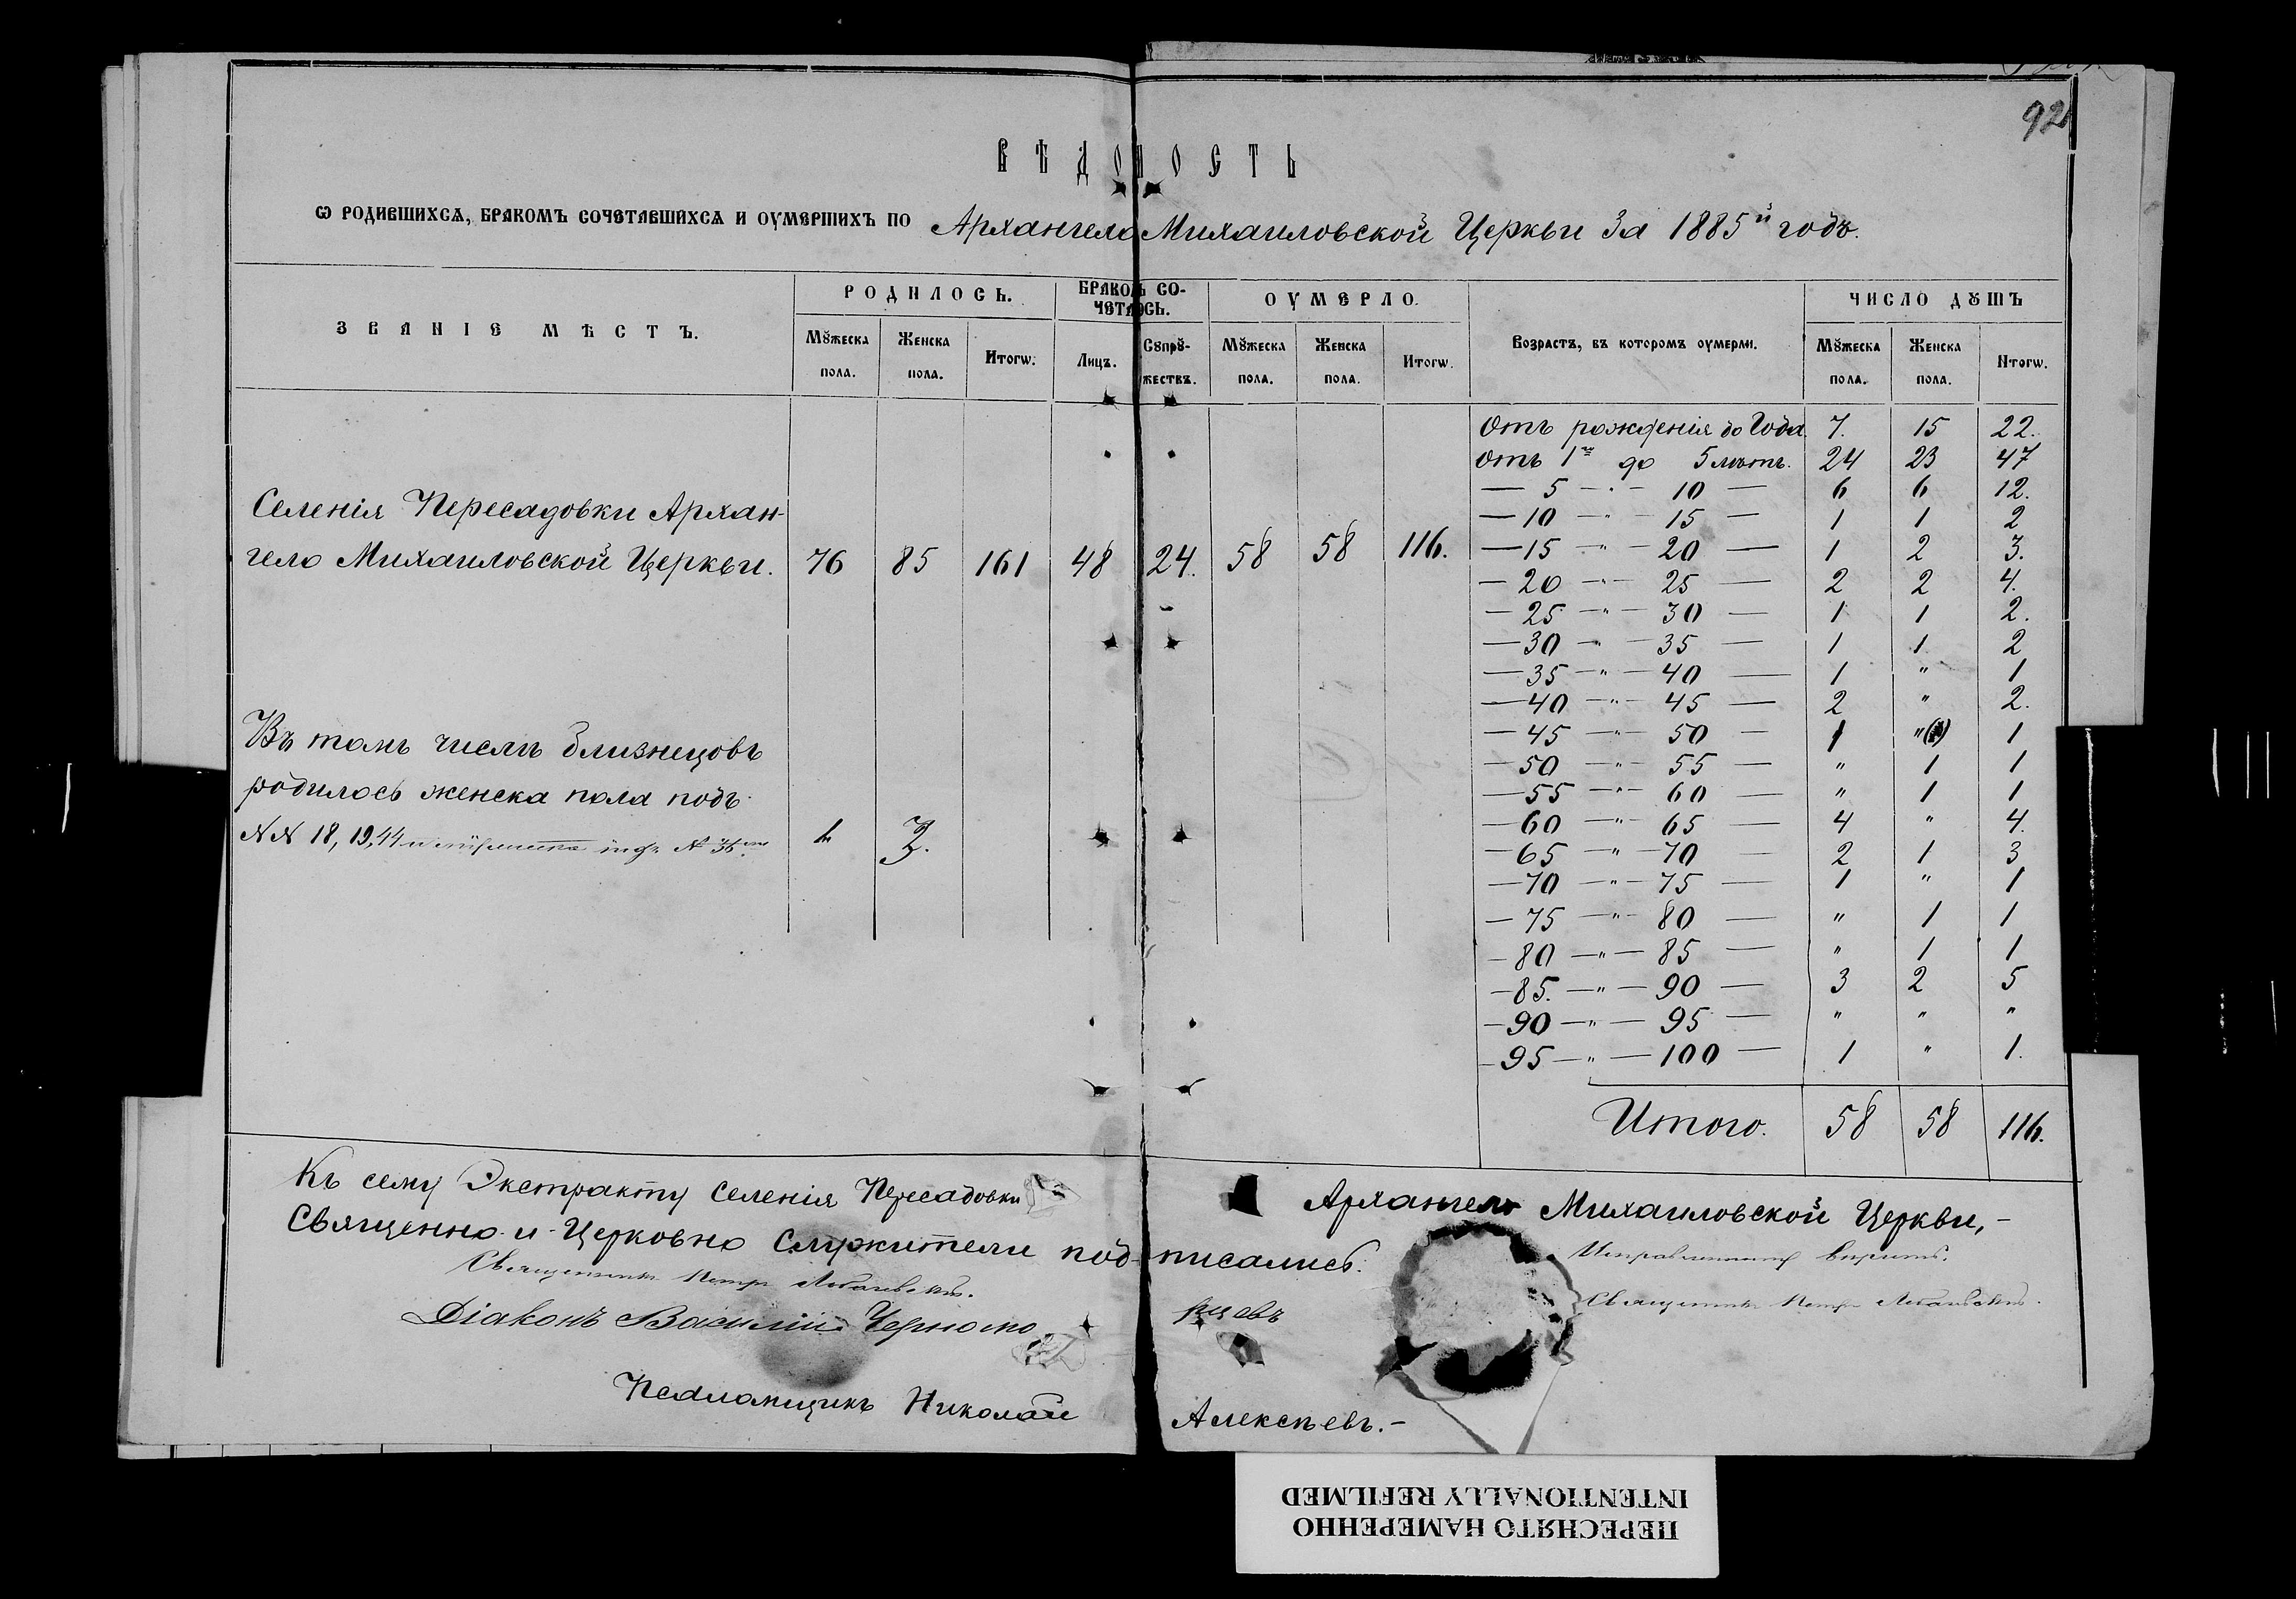 92
ВѢДОМОСТЬ
Ѡ РОДИВШИХСѦ, БРАКОМЪ СОЧЕТАВШИХСѦ И ОУМЕРШИХЪ ПО Архангело Михаиловской Церкви За 1885й годъ.
ЗВАНІЕ МѢСТЪ. РОДИЛОСЬ. БРАКОМЪ СОЧЕТАЛОСЬ. ОУМЕРЛО. Возрастъ, въ которомъ оумерли. ЧИСЛО ДꙊШЪ
Мꙋжеска пола. Женска пола. Итогѡ. Лицъ. Сꙋпрꙋ-жествъ. Мꙋжеска пола. Женска пола. Итогѡ. Мꙋжеска пола. Женска пола. Итогѡ.
Отъ рожденія до Года. 7. 15 22.
Отъ 1го до 5 лѣтъ. 24 23 47
— 5 — " — 10 — 6 6 12.
— 10 — " — 15 — 1 1 2
Селенія Пересадовки Архан-
гело Михаиловской Церкви. 76 85 161 48 24. 58 58 116.
— 15 — " — 20 — 1 2 3.
— 20 — " — 25 — 2 2 4.
— 25 — " — 30 — 1 1 2.
— 30 — " — 35 — 1 1 2
— 35 — " — 40 — 1 " 1
— 40 — " — 45 — 2 " 2.
— 45 — " — 50 — 1 " 1
— 50 — " — 55 — " 1 1
— 55 — " — 60 — " 1 1
— 60 — " — 65 — 4 " 4.
— 65 — " — 70 — 2 1 3
— 70 — " — 75 — 1 " 1
— 75 — " — 80 — " 1 1
— 80 — " — 85 — " 1 1
— 85. — " — 90 — 3 2 5
— 90 — " — 95 — " " "
— 95 — " — 100 — 1 " 1.
Въ томъ числѣ близнецовъ
родилось женска пола подъ
№№ 18, 19, 44 и
Итого. 58 58 116.
Къ сему Экстракту Селенія Пересадовки Архангело Михаиловской Церкви, —
Священно и Церковно Служители подписались.
Священникъ Петръ
Исправленному вѣрить.
Священникъ Петръ
Діаконъ Василій Черноморцевъ
Псаломщикъ Николай Алексѣевъ. —
ПЕРЕСНЯТО НАМЕРЕННО
INTENTIONALLY REFILMED